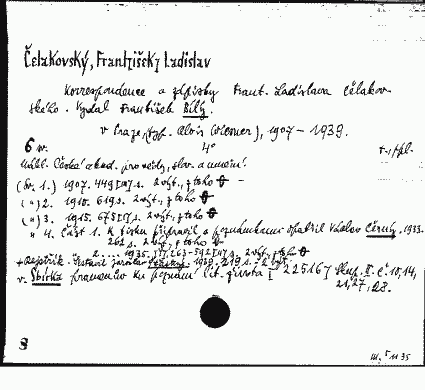 Čelakovský, František Ladislav
Korrespondence a zápisky Frant. Ladislava Čelakov-
ského. Vydal František Bílý.
v Praze, (typ. Alois Wiesner), 1907 – 1939.
6 sv. 4°
Nákl. České akad. pro vědy, slov. a umění.
(Sv. 1.) 1907. 449 s. 2 výt., z toho
( " ) 2. 1910. 619 s. 2 výt., z toho
( " ) 3. 1915. 675 s. 2 výt., z toho
" 4. Část 1. K tisku připravil a poznámkami opatřil Václav Černý. 1933.
262 s. 2 výt., z toho
2. ... 1935. 263-542 s. 2 výt., z toho
+ Rejstřík. Sestavil Jaroslav 1939. 219 s. 2 výt.
v. Sbírka pramenův ku poznání lit. života I 225167 Skup. II. č. 10, 14,
21, 27, 28.
8